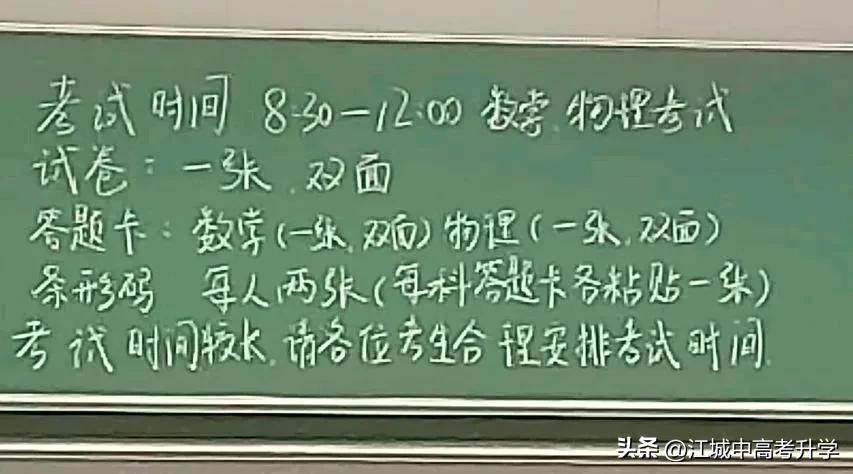 考试时间 8:30—12:00 数学、物理考试
试卷：一张、双面
答题卡：数学(一张、双面)物理(一张、双面)
条形码 每人两张(每科答题卡各粘贴一张)
考试时间较长，请各位考生合理安排考试时间.
头条 @江城中高考升学